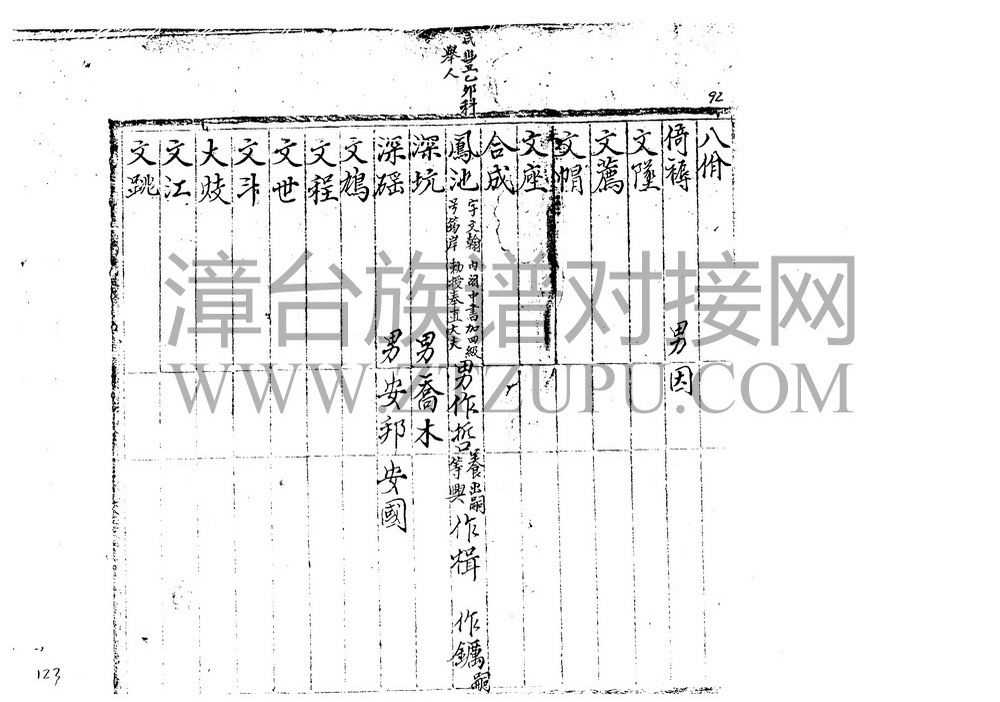 92
咸豐乙卯科
舉人
八佾
倚褥 男因
文墜
文薦
文帽
文座
合成
鳳池 字文翰 内閣中書加四級
号 岸 勅授奉直大夫
男作哲 養出嗣
等興
作楫 作鑴嗣
深坑 男喬木
深磘 男安邦 安國
文鴆
文程
文世
文斗
大妓
文江
文跳
123
漳台族谱对接网
WWW.ZTZUPU.COM